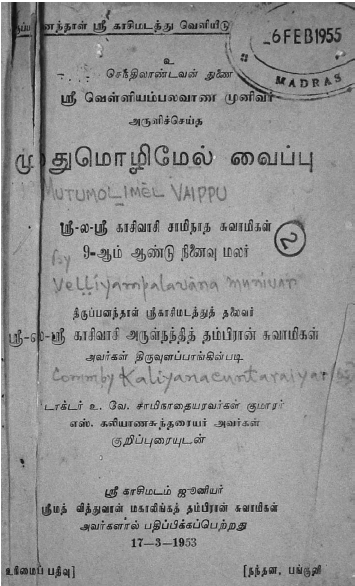 திருப்பனந்தாள் ஸ்ரீ காசிமடத்து வெளியீடு
6 FEB 1955
MADRAS
உ
செந்திலாண்டவன் துணை
ஸ்ரீ வெள்ளியம்பலவாண முனிவர்
அருளிச்செய்த
முதுமொழிமேல் வைப்பு
MUTUMOLIMĒL VAIPPU
ஸ்ரீ-ல-ஸ்ரீ காசிவாசி சாமிநாத சுவாமிகள்
9-ஆம் ஆண்டு நினைவு மலர்
2
by
Velliyampalavana munivar
திருப்பனந்தாள் ஸ்ரீகாசிமடத்துத் தலைவர்
ஸ்ரீ-ல-ஸ்ரீ காசிவாசி அருள்நந்தித் தம்பிரான் சுவாமிகள்
அவர்கள் திருவுளப்பாங்கின்படி
Comm by Kaliyanacuntaraiyar
டாக்டர் உ. வே. சாமிநாதையரவர்கள் குமாரர்
எஸ். கலியாணசுந்தரையர் அவர்கள்
குறிப்புரையுடன்
ஸ்ரீ காசிமடம் ஜூனியர்
ஸ்ரீமத் வித்துவான் மகாலிங்கத் தம்பிரான் சுவாமிகள்
அவர்களால் பதிப்பிக்கப்பெற்றது
17-3-1953
உரிமைப் பதிவு] [நந்தன, பங்குனி